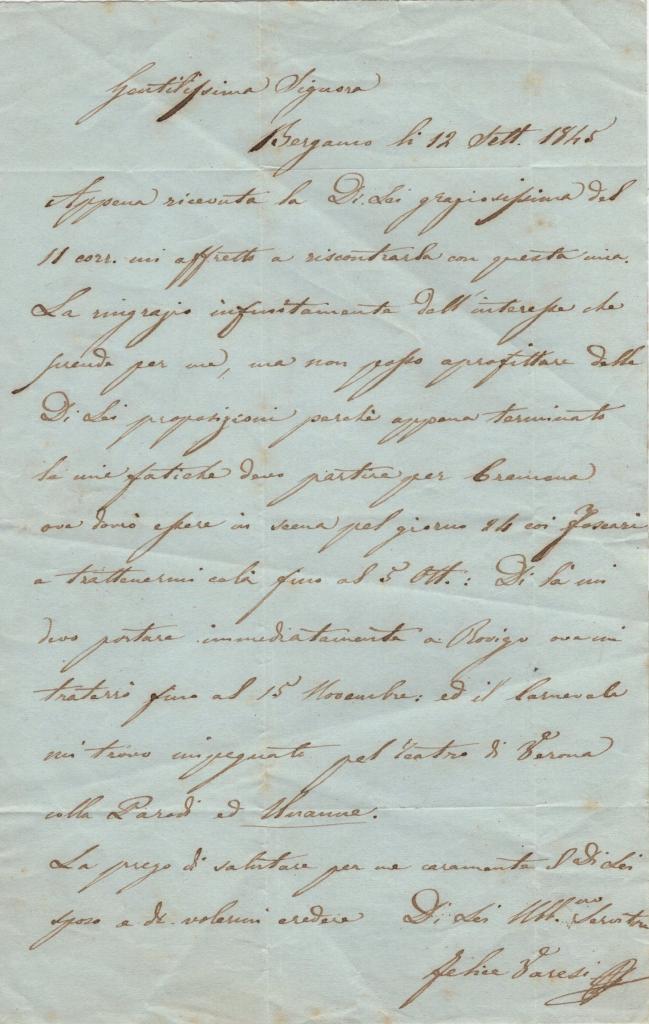 Gentilissima Signora
Bergamo li 12 Sett. 1845
Appena ricevuta la Di Lei graziosissima del
11 corr. mi affretto a riscontrarla con questa mia.
La ringrazio infinitamente dell'interesse che
prende per me, ma non posso aprofittare delle
Di Lei proposizioni perchè appena terminato
le mie fatiche devo partire per Cremona
ove dovrò essere in scena pel giorno 24 coi Foscari
e trattenermi colà fino al 5 Ott.: Di là mi
devo portare immediatamente a Rovigo ove mi
traterrò fino al 15 Novembre: ed il Carnevale
mi trovo impegnato pel Teatro di Verona
colla Parodi ed
La prego di salutare per me caramente il Di Lei
sposo e di volermi credere Di Lei Obb.mo Servitore
Felice Varesi